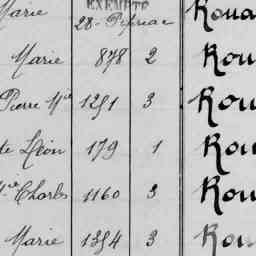 Marie EXEMPTÉ Roua
28 - Pipriac
Marie 878 2 Rou
Pierre Mie 1251 3 Rou
de Léon 179 1 Rou
Charles 1160 3 Rou
Marie 1354 3 Rou